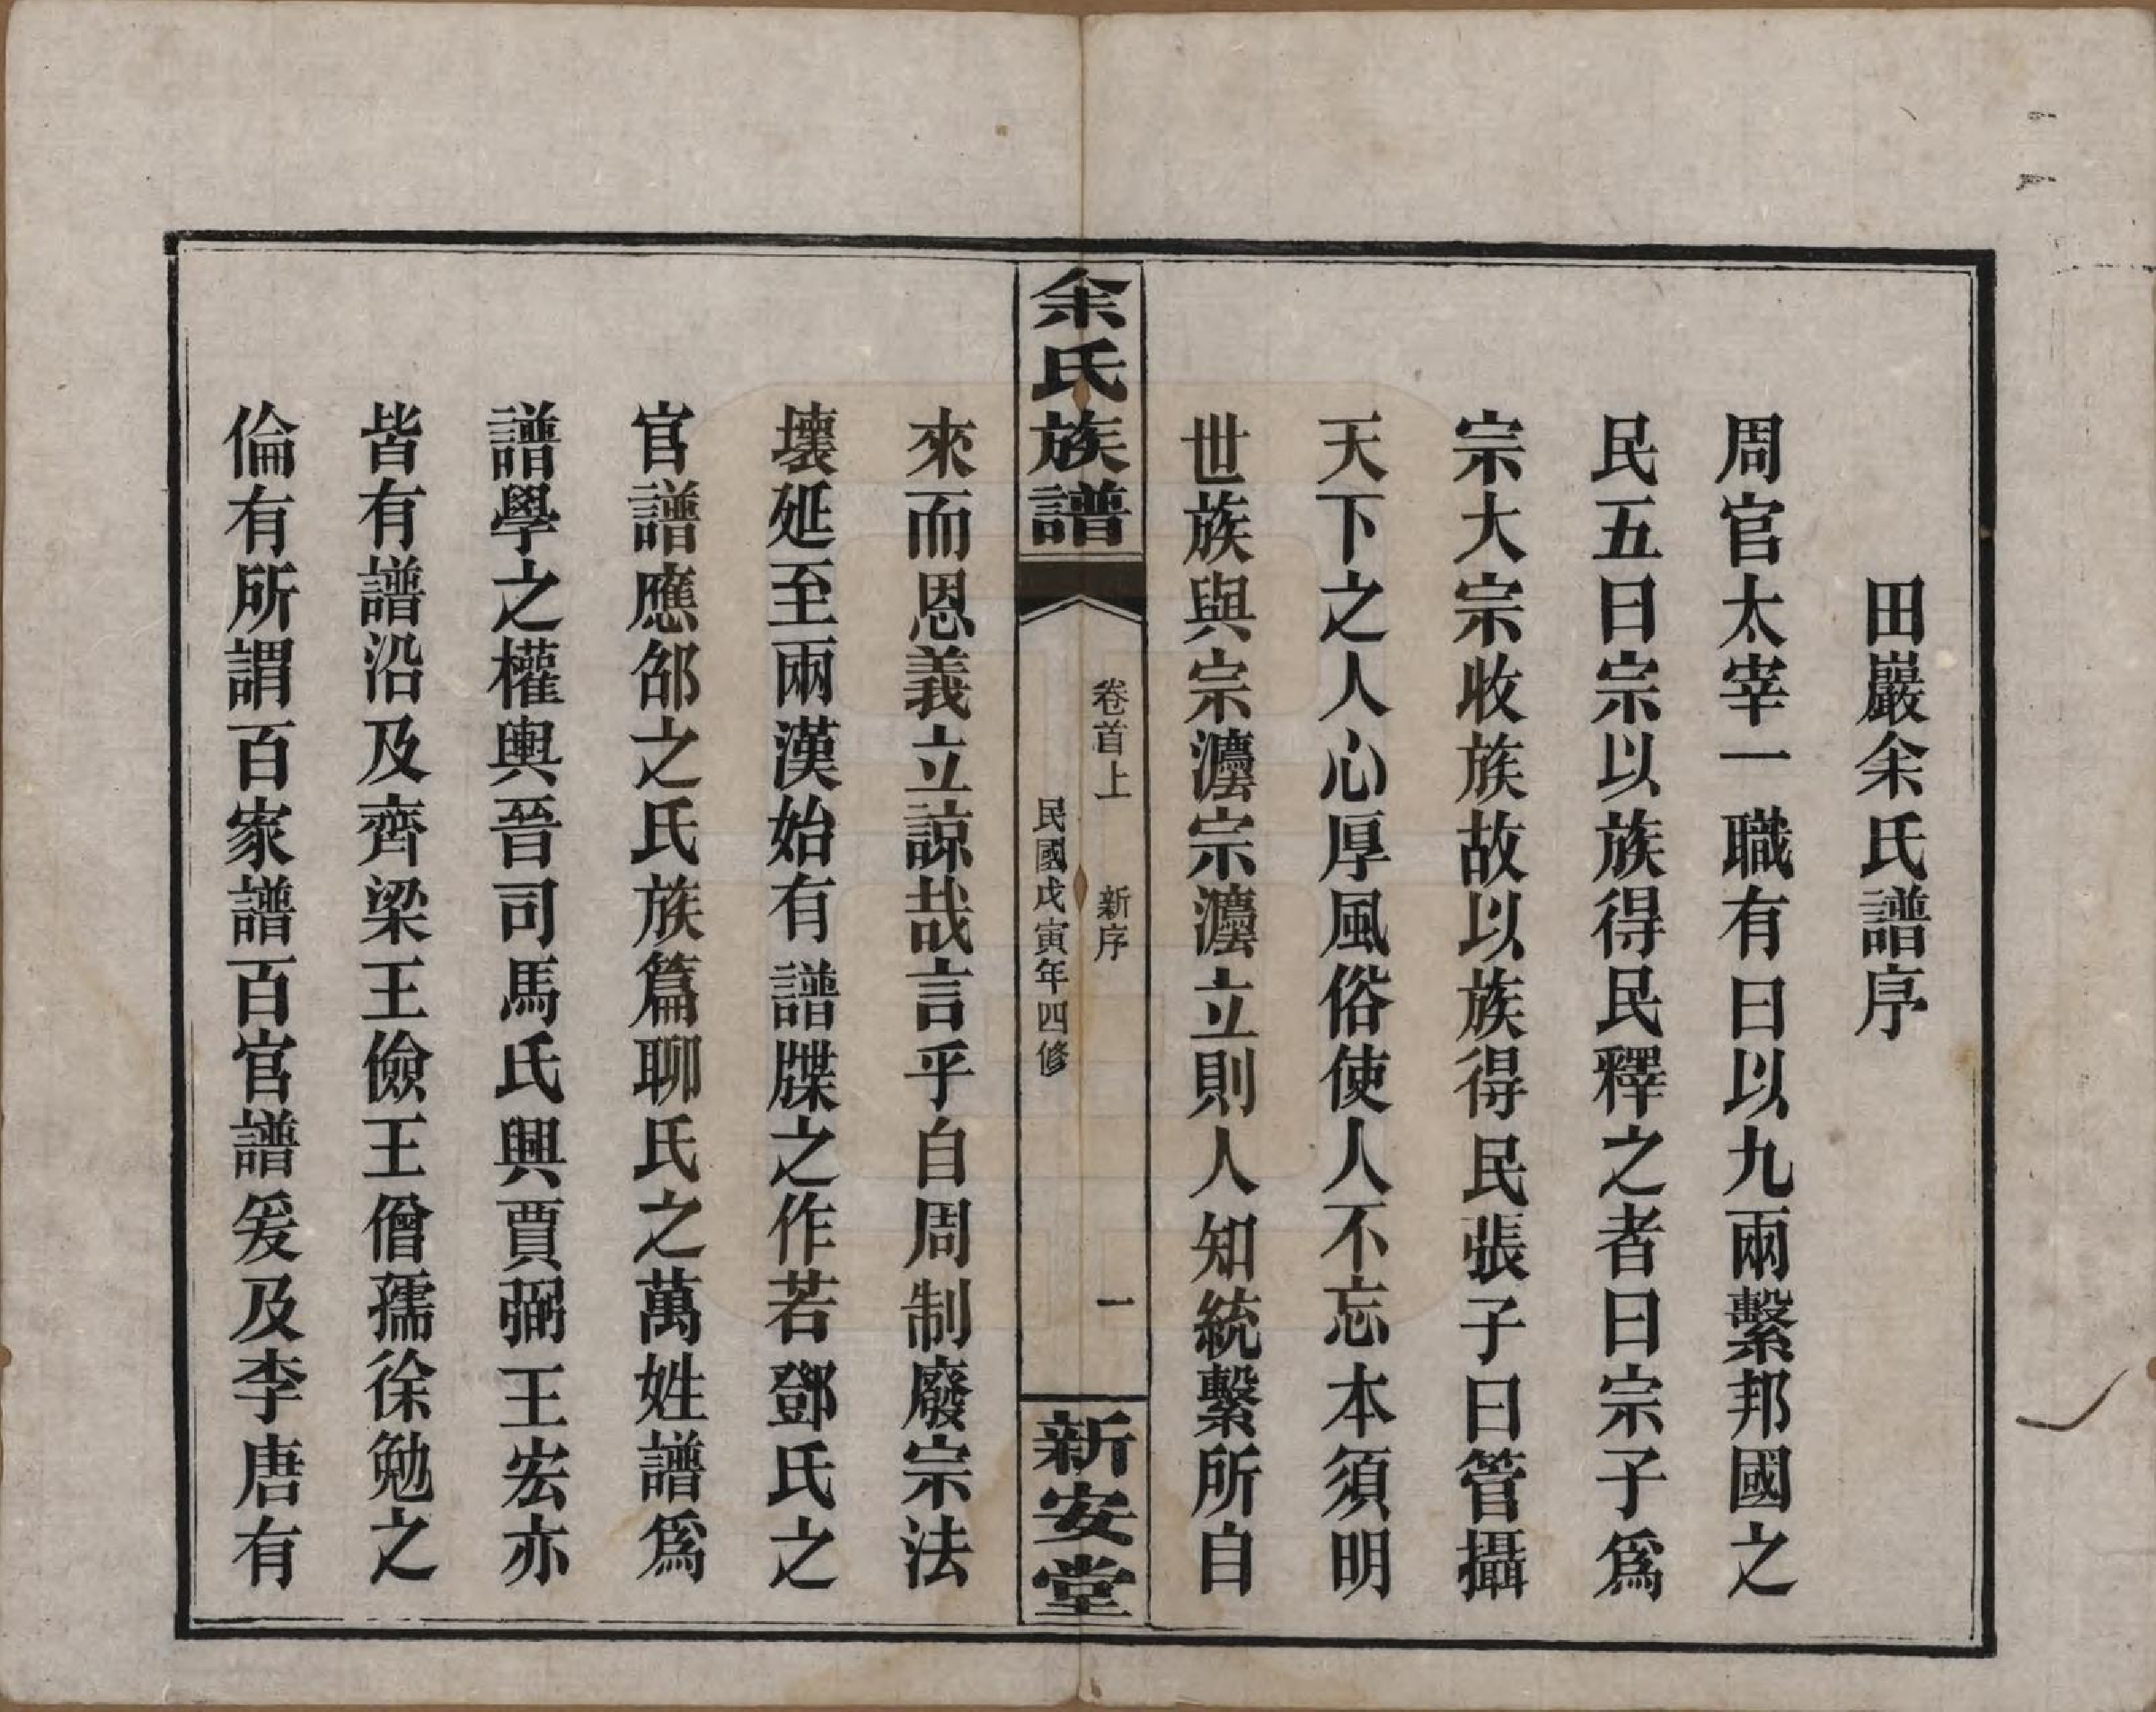 田巖余氏譜序
周官太宰一職有曰以九兩繫邦國之
民五曰宗以族得民釋之者曰宗子爲
宗大宗收族故以族得民張子曰管攝
天下之人心厚風俗使人不忘本須明
世族與宗灋宗灋立則人知統繫所自
余氏族譜
卷首上
新序
一
民國戊寅年四修
新安堂
來而恩義立諒哉言乎自周制廢宗法
壞延至兩漢始有譜牒之作若鄧氏之
官譜應邵之氏族篇聊氏之萬姓譜爲
譜學之權輿晉司馬氏興賈弼王宏亦
皆有譜沿及齊梁王儉王僧孺徐勉之
倫有所謂百家譜百官譜爰及李唐有